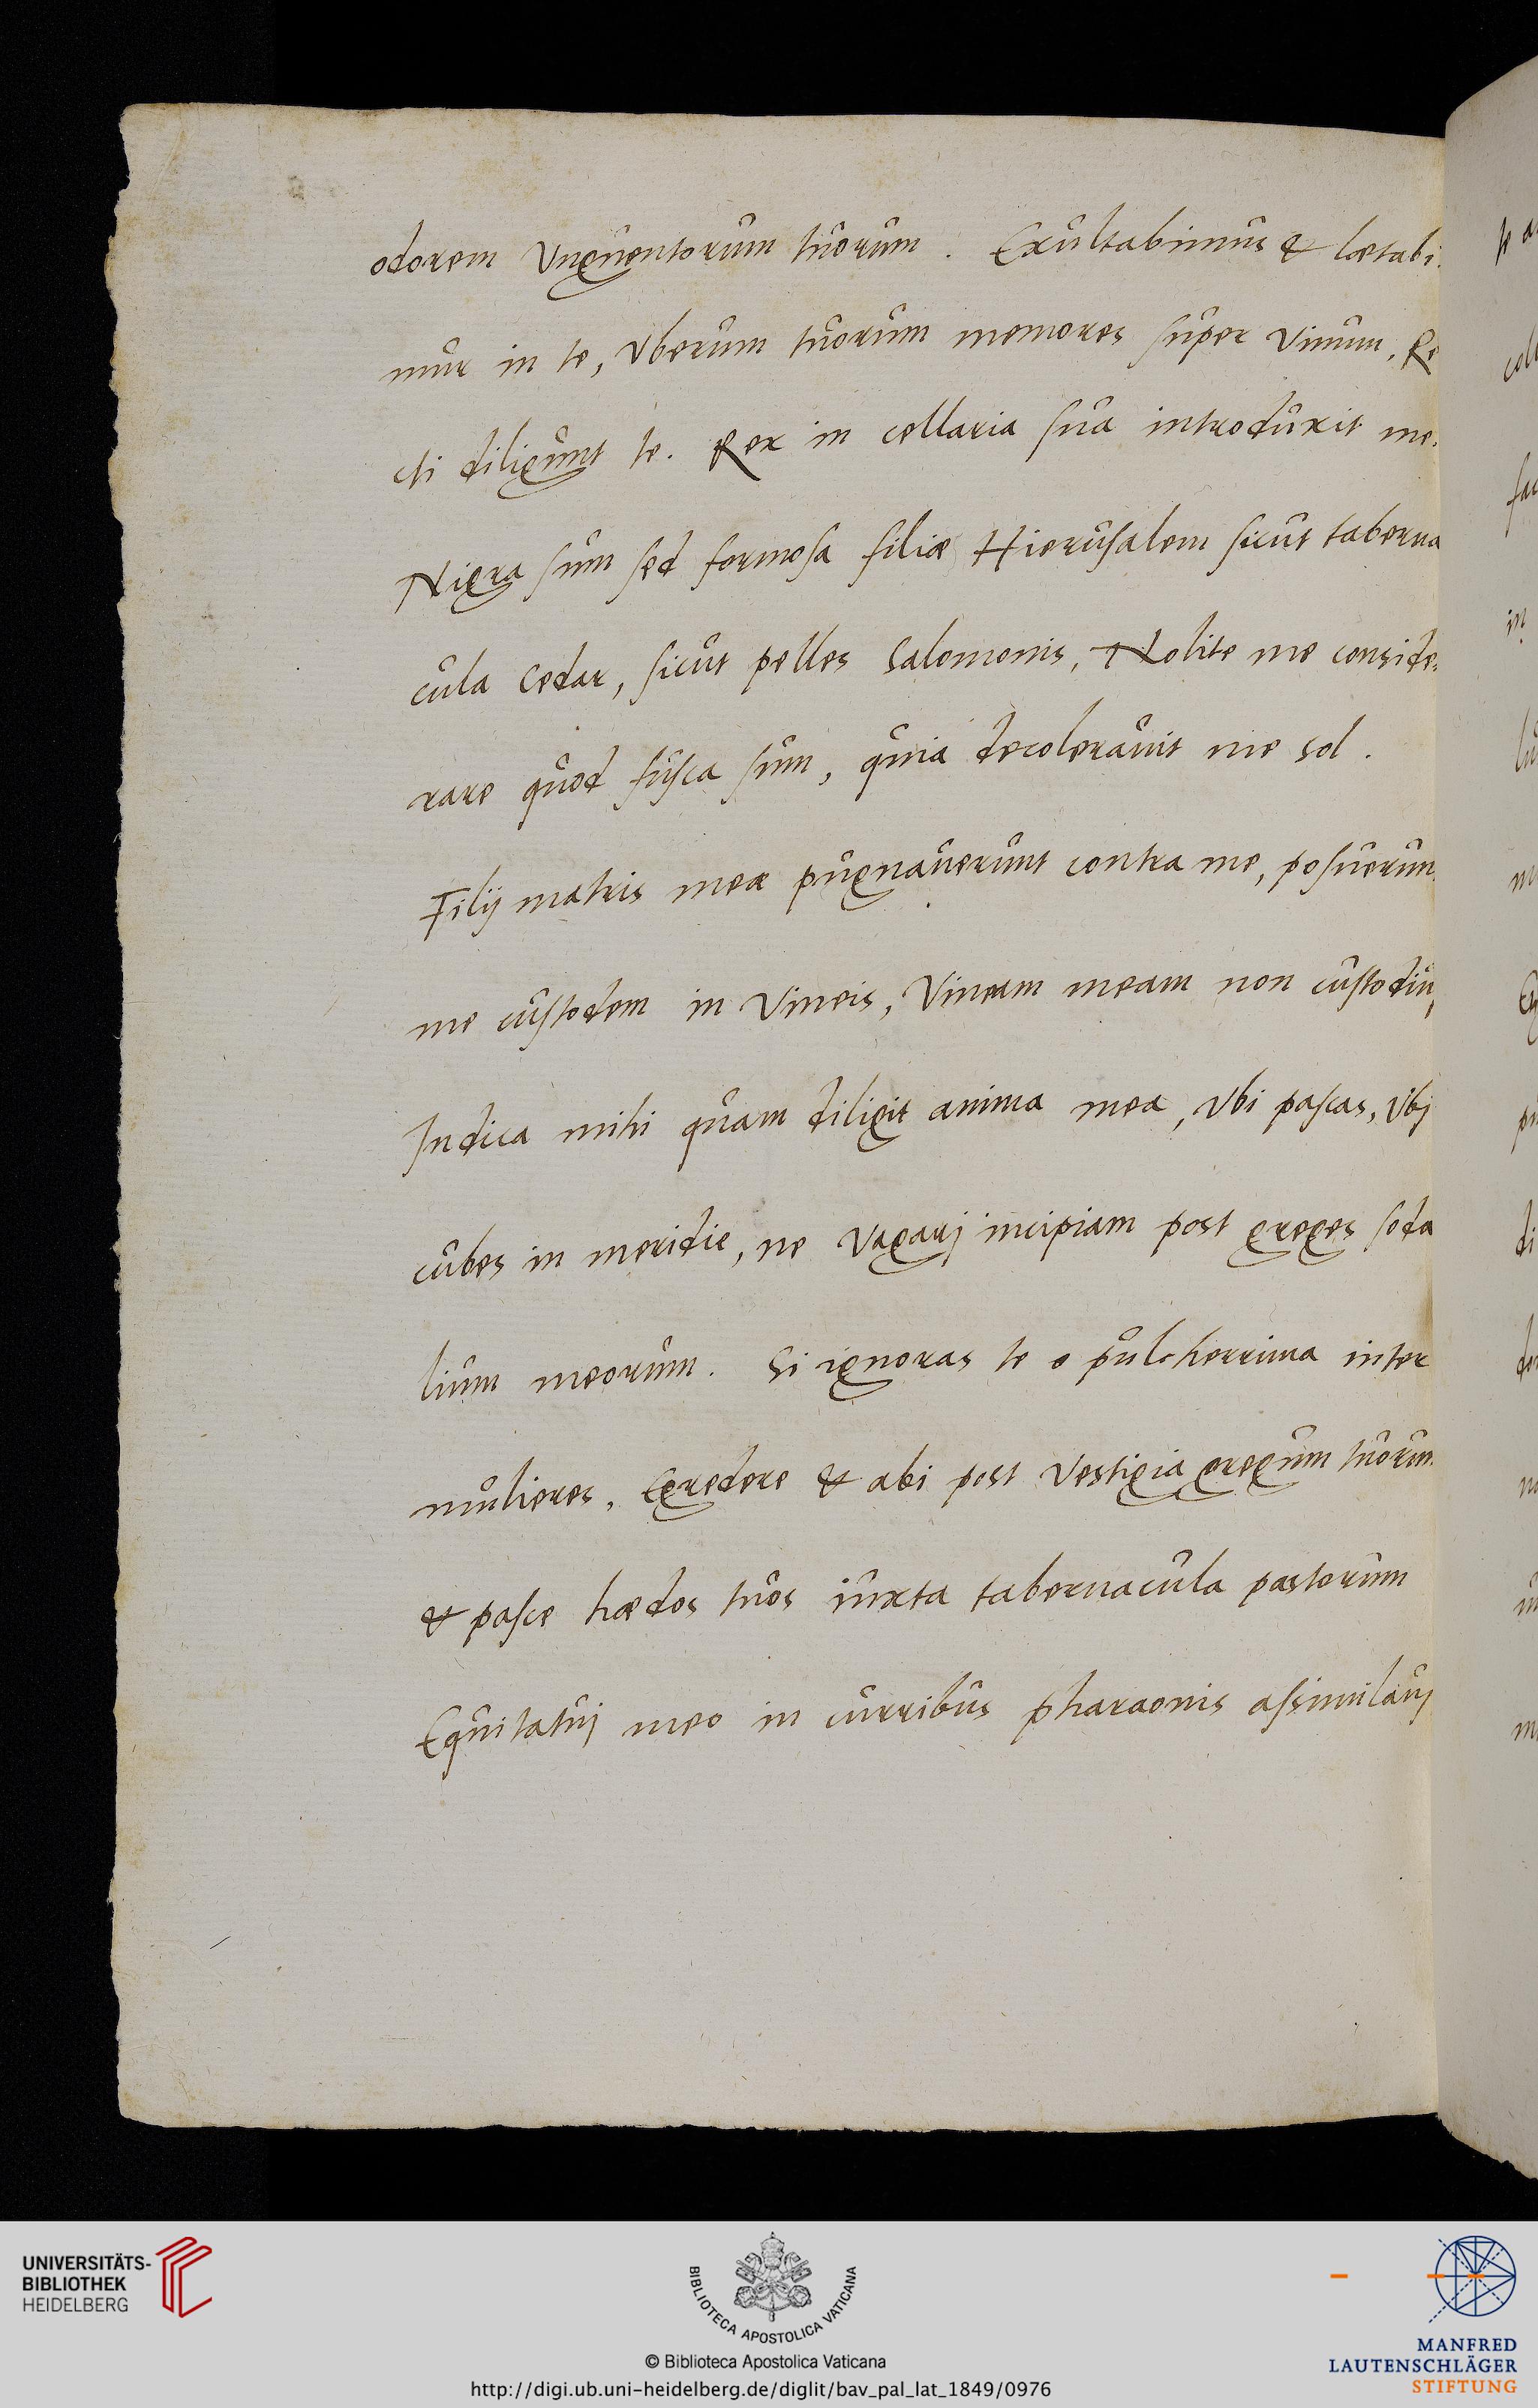 odorem Vnguentorum tuorum. Exultabimus & lætabi
mur in te, Vberum tuorum memores super Vinum, Re
cti diligunt te. Rex in cellaria sua introduxit me.
Nigra sum sed formosa filiæ Hierusalem sicut taberna
cula Cedar, sicut pelles Salomonis, Nolite me conside,
rare quod fusca sum, quia decolerauit me sol.
Filij matris meæ pugnauerunt contra me, posuerun
me custodem in Vineis, Vineam meam non custodiui,
Indica mihi quam diligit anima mea, Vbi pascas, Vbj
cubes in meridie, ne Vagarj incipiam post greges soda
lium meorum. Si ignoras te o pulcherrima inter
mulieres, Egredere & abi post Vestigia gregum tuorum
& pasce hædos tuos iuxta tabernacula pastorum
Equitatuj meo in curribus pharaonis assimilauj
UNIVERSITÄTS-
BIBLIOTHEK
HEIDELBERG
BIBLIOTECA APOSTOLICA VATICANA
© Biblioteca Apostolica Vaticana
http://digi.ub.uni-heidelberg.de/diglit/bav_pal_lat_1849/0976
MANFRED
LAUTENSCHLÄGER
STIFTUNG